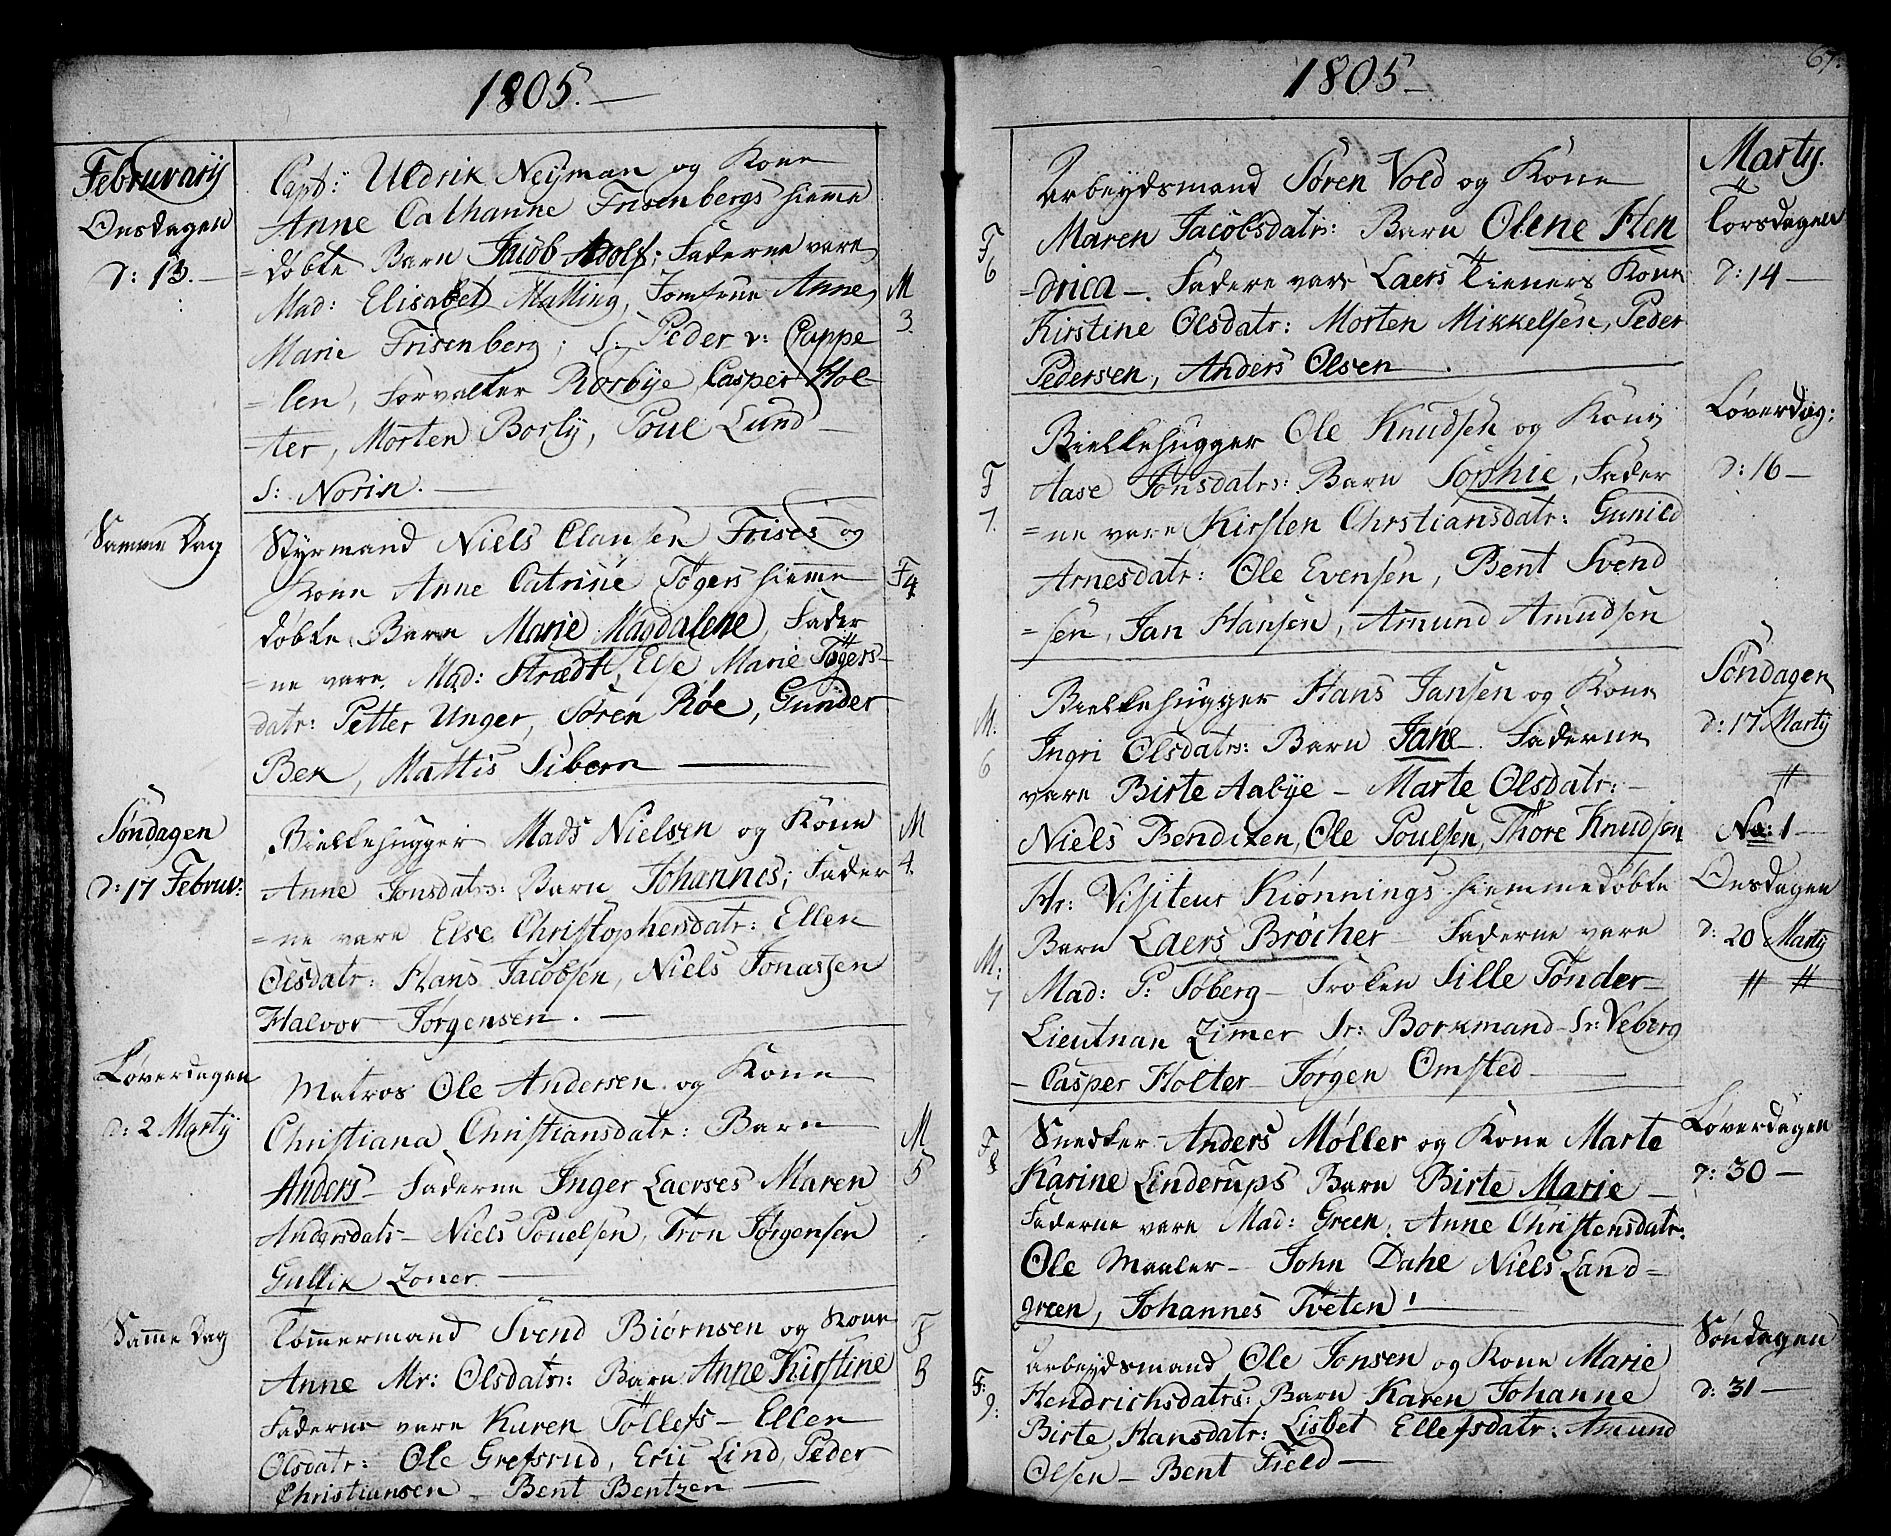 1805.
Februarij
Onsdagen
d: 13.
Capt: Uldrik Neijman og Kone
Anne Cathanne Frisenbergs hieme
=døbte Barn Jacob Adolf; Faderne vare
Mad: Elisabet Malling, Jomfrue Anne
Marie Frisenberg; S: Peder v: Cappe
=len, Forvalter Rorbye, Casper Hol=
=ter, Morten Borly, Poul Lund
S: Norin.
M
3.
Samme Dag
Styrmand Niels Clausen Frises og
Kone Anne Catrine Tøgers hieme
døbte Barn Marie Magdalene, Fader
=ne vare Mad: Strædt, Else Marie Tøgers-
datr: Petter Unger, Søren Røe, Gunder
Bek, Mattis Sibern
F4
Søndagen
d: 17 Februv:
Bielkehugger Mads Nielsen og Kone
Anne Jonsdatr: Barn Johannes; Fader
=ne vare Else Christophersdatr: Ellen
Olsdatr: Hans Jacobsen, Niels Jonassen
Halvor Jørgensen.
M
4.
Løverdagen
d: 2 Martij
Matros Ole Andersen og Kone
Christiana Christiansdatr: Barn
Anders- Faderne Inger Laerses Maren
Andersdatr- Niels Pouelsen, Tron Jørgensen
Gullik Zoner.
M
5
Samme Dag
Tømmermand Svend Biørnsen og Kone
Anne Mr: Olsdatr: Barn Anne Kirstine
Faderne vare Karen Tøllefs- Ellen
Olsdatr: Ole Grefsrud, Eric Lind, Peder
Christiansen- Bent Bentzen-
F
5
1805
67.
F
6
Arbeydsmand Søren Vold og Kone
Maren Jacobsdatr: Barn Olene Hen
=drica-. Fadere vare Laers Tieners Kone
Kirstine Olsdatr: Morten Mikkelsen, Peder
Pedersen, Anders Olsen.
Martij.
Torsdagen
d: 14-
F
7.
Bielkehugger Ole Knudsen og Kone
Aase Jonsdatrs: Barn Sophie, Fader
=ne vare Kirsten Chrstiansdatr: Gunild
Arnesdatr: Ole Evensen, Bent Svend
=sen, Jan Hansen, Amund Amudsen
Løverdag:
d: 16-
M.
6
Bielkehugger Hans Jansen og Kone
Ingri Olsdatrs: Barn Jane. Faderne
vare Birte Aabye- Marte Olsdatr:-
Niels Bendixen, Ole Poulsen, Thore Knudsen
Søndagen
d: 17 Martij
No: 1-
M:
7
Hr: Visiteur Kiønnings hiemmedøbte
Barn Laers Brøcher- Faderne vare
Mad: P: Søberg- Frøken Sille Tønder-
Lieutnan Zimer Sr: Borkmand- Sr: Veberg
- Casper Holter- Jørgen Omsted-
Onsdagen
d: 20 Martij
F
8
Snedker- Anders Møller og Kone Marte
Karine Linderups Barn Birte Marie-
Faderne vare Mad: Green, Anne Christensdatr:
Ole Maaler- John Dahl Niels Land=
green, Johannes Tveten!
Løverdagen
d: 30-
F:
9:
Arbeydsmand Ole Jonsen og Kone Marie
Hendrichsdatrs: Barn Karen Johanne
Birte Hansdatr: Lisbet Ellefsdatr: Amund
Olsen- Bent Field-
Søndagen
d: 31-